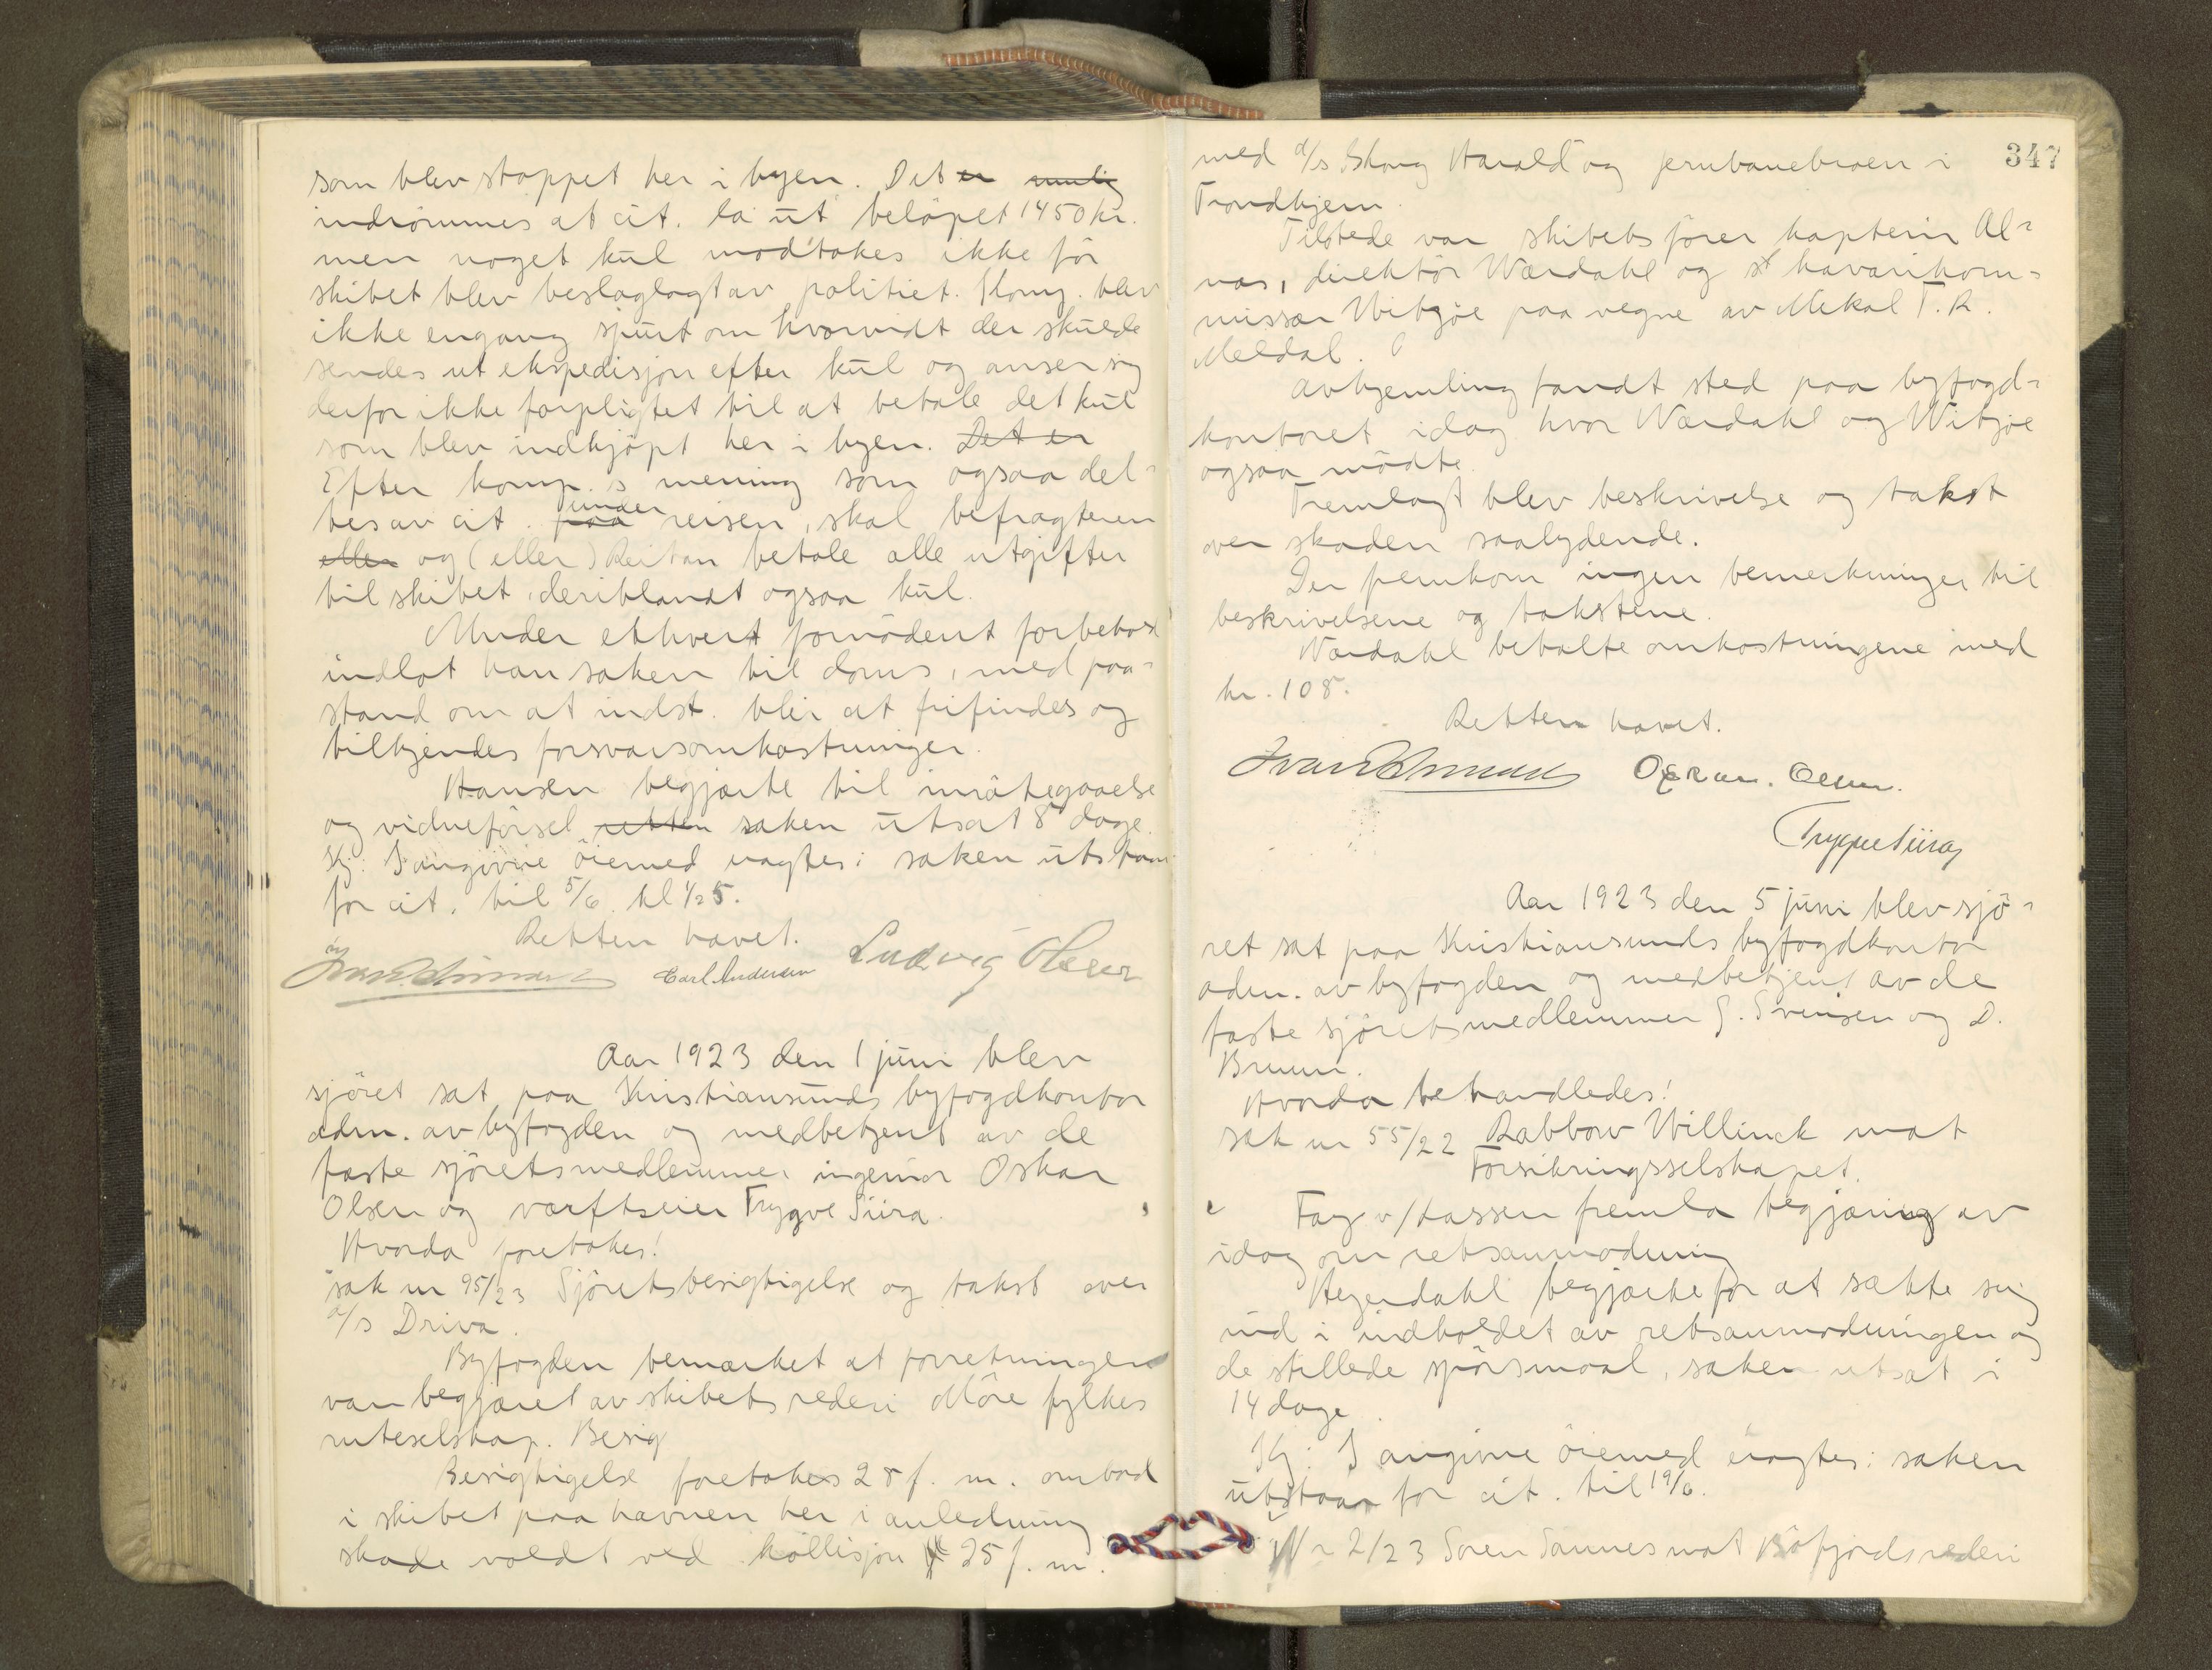 som blev stoppet her i byen. Det er mulig
indrömmes at cit. la ut beløpet 1450 kr.
men noget kul modtokes ikke før
skibet blev beslaglagt av politiet. Komp. blev
ikke engang spurt om hvorvidt der skulde
sendes ut ekspedisjon efter kul og anser sig
derfor ikke forpligtet til at betale det kul
som blev indkjöpt her i byen. Det er
Efter komp.s mening som ogsaa del-
tes av cit. paa under reisen, skal befragteren
eller og (eller) Reitan betale alle utgifter
til skibet, deriblandt ogsaa kul.
Under ethvert fornödent forbehold
indlot han saken til doms, med paa-
stand om at indst. blir at frifindes og
tilkjendes forsvarsomkostninger.
Hansen begjærte til imötegaaelse
og vidneförsel retten saken utsat 8 dage.
Kj: I angivne öiemed vagtes: saken utstaar
for cit. til 5/6 kl 1/2 5.
Retten hævet.
Carl Andersen Ludvig Olsen
Aar 1923 den 1 juni blev
sjöret sat paa Kristiansunds byfogdkontor
adm. av byfogden og medbetjent av de
faste sjöretsmedlemmer ingeniör Oskar
Olsen og værftseier Trygve Siira.
Hvorda foretokes:
sak nr 95/23 Sjöretsbesigtigelse og takst over
d/s Driva.
Byfogden bemærket at forretningen
var begjæret av skibets rederi Möre fylkes
ruteselskap. Besig
Besigtigelse foretokes 28 f. m. ombord
i skibet paa havnen her i anledning
skade voldt ved kollisjon 25 f. m.
347
med d/s Kong Harald og jernbanebroen i
Trondhjem.
Tilstede var skibets förer kaptein Al-
næs, direktör Wærdahl og havarikom-
missær Wibgöe paa vegne av Mekal T. R.
Meldal.
Avhjemling fandt sted paa byfogd-
kontoret idag hvor Wærdahl og Wibgöe
ogsaa mödte.
Fremlagt blev beskrivelse og takst
over skaden saalydende.
Der fremkom ingen bemerkninger til
beskrivelsene og takstene.
Wærdahl betalte omkostningene med
kr. 108.
Retten hævet.
Oskar Olsen.
Trygve Siira
Aar 1923 den 5 juni blev sjö-
ret sat paa Kristiansunds byfogdkontor
adm. av byfogden og medbetjent av de
faste sjöretsmedlemmer G. Svensen og D.
Bruun.
Hvorda behandledes:
sak nr 55/22 Rabbow Willinck mot
Forsikringsselskapet.
Fag v/ Lassen fremla begjæring av
idag om retsanmodning
Heyerdahl begjærte for at sætte sig
ind i indholdet av retsanmodningen og
de stillede spörsmaal, saken utsat i
14 dage.
Kj: I angivne öiemed vagtes: saken
utstaar for cit. til 19/6.
Nr 2/23 Sören Sannes mot Böfjords rederi